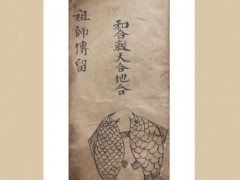 和合敍天合地合
祖師傳留